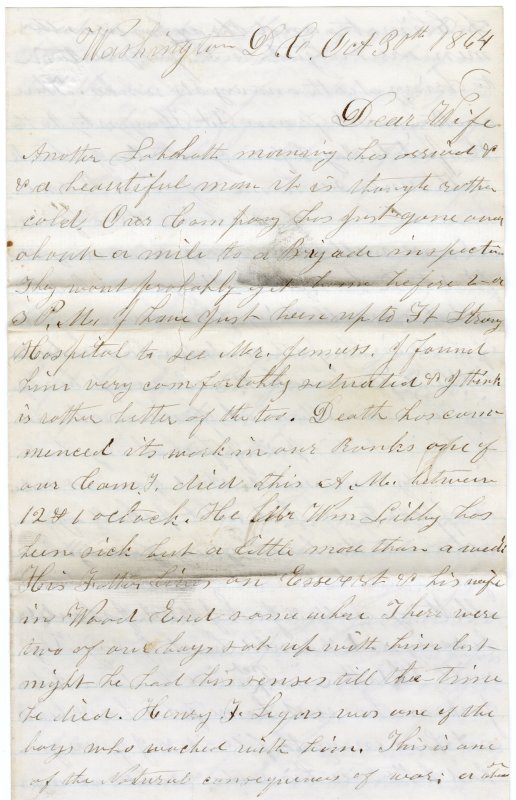 Washington D.C. Oct 30th 1864
Dear Wife
Another Sabbath morning has arrived &
& a beautiful morn it is though rather
cold. Our Company has just gone over
about a mile to a Brigade inspection
They wont probably get home before 2 or
3 P.M. I have just been up to Ft Strong
Hospital to see Mr. I found
him very comfortably situated & I think
is rather better of the two. Death has com
menced its work in our Ranks one of
our Com. died this A.M. between
12 & 1 oclock. He Wm Libby has
been sick but a little more than a week
His Father lives on Essex st & his wife
in Wood End some where There were
two of our boys sat up with him last
night he had his senses till the time
he died. Henry was one of the
boys who wached with him. This is one
of the Natural consequences of war; or